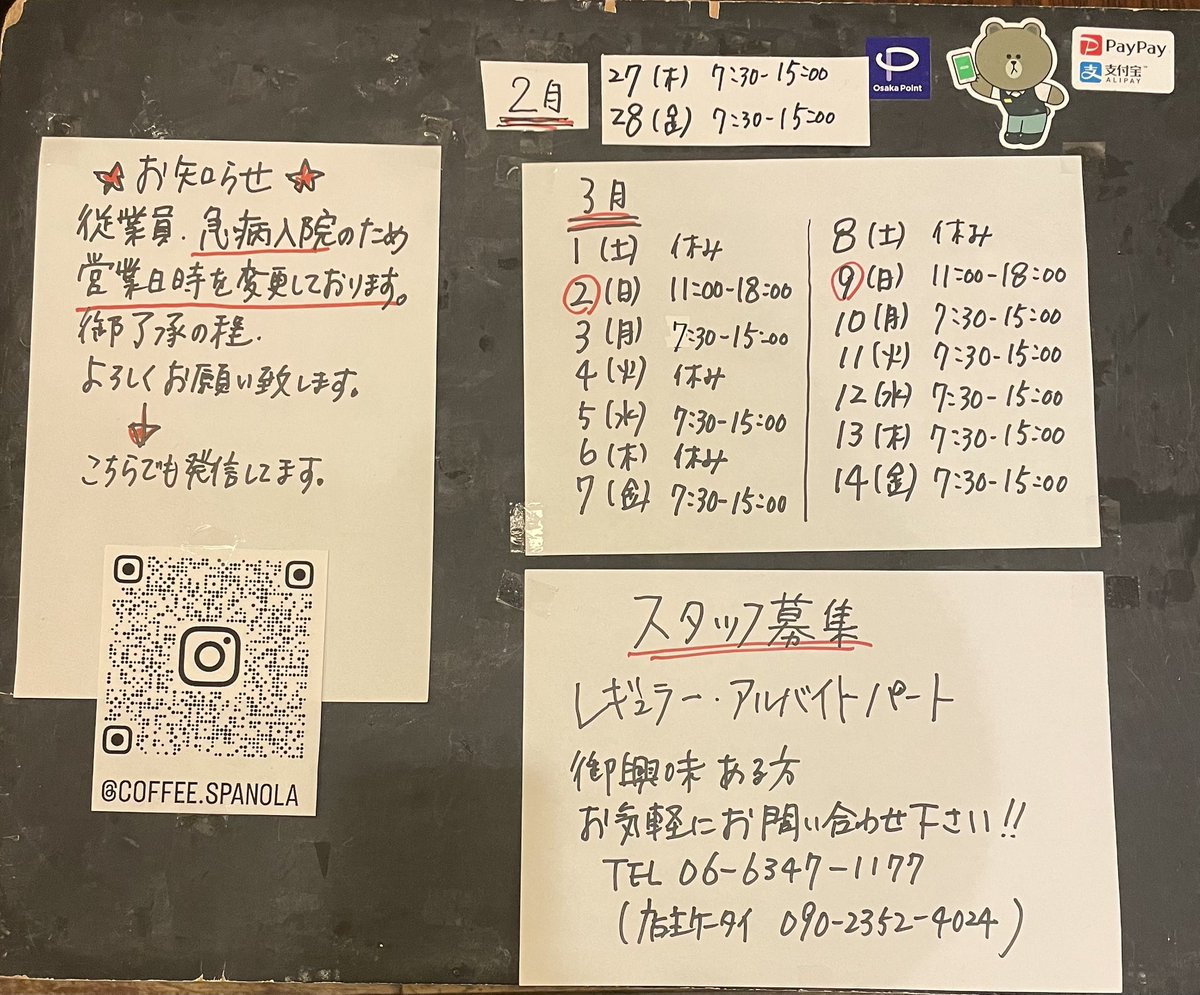 2月
27(木) 7:30-15:00
28(金) 7:30-15:00
Osaka Point
PayPay
支付宝™
ALIPAY
お知らせ
従業員.急病入院のため
営業日時を変更しております。
御了承の程.
よろしくお願い致します。
こちらでも発信してます。
@COFFEE.SPANOLA
3月
1(土) 休み
2(日) 11:00-18:00
3(月) 7:30-15:00
4(火) 休み
5(水) 7:30-15:00
6(木) 休み
7(金) 7:30-15:00
8(土) 休み
9(日) 11:00-18:00
10(月) 7:30-15:00
11(火) 7:30-15:00
12(水) 7:30-15:00
13(木) 7:30-15:00
14(金) 7:30-15:00
スタッフ募集
レギュラー・アルバイトパート
御興味ある方
お気軽にお問い合わせ下さい!!
TEL 06-6347-1177
(店主ケータイ 090-2352-4024)